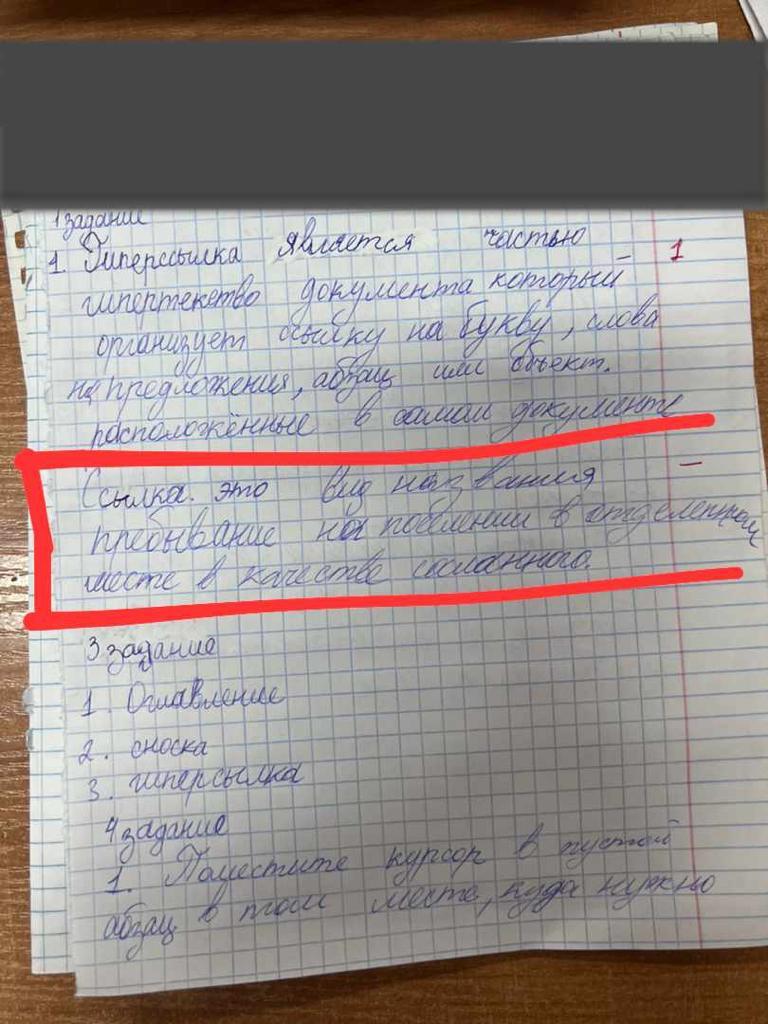 1 задание
1. Гиперссылка является частью 1
гипертекство документа который
организует ссылку на букву, слова
на предложения, абзац или объект.
расположённые в самом документе
Ссылка. это вид названия –
пребывание на поселении в отделенном
месте в качестве сосланного.
3 задание
1. Оглавление
2. сноска
3. гиперсылка
4 задание
1. Поместите курсор в пустой
абзац в том месте, куда нужно